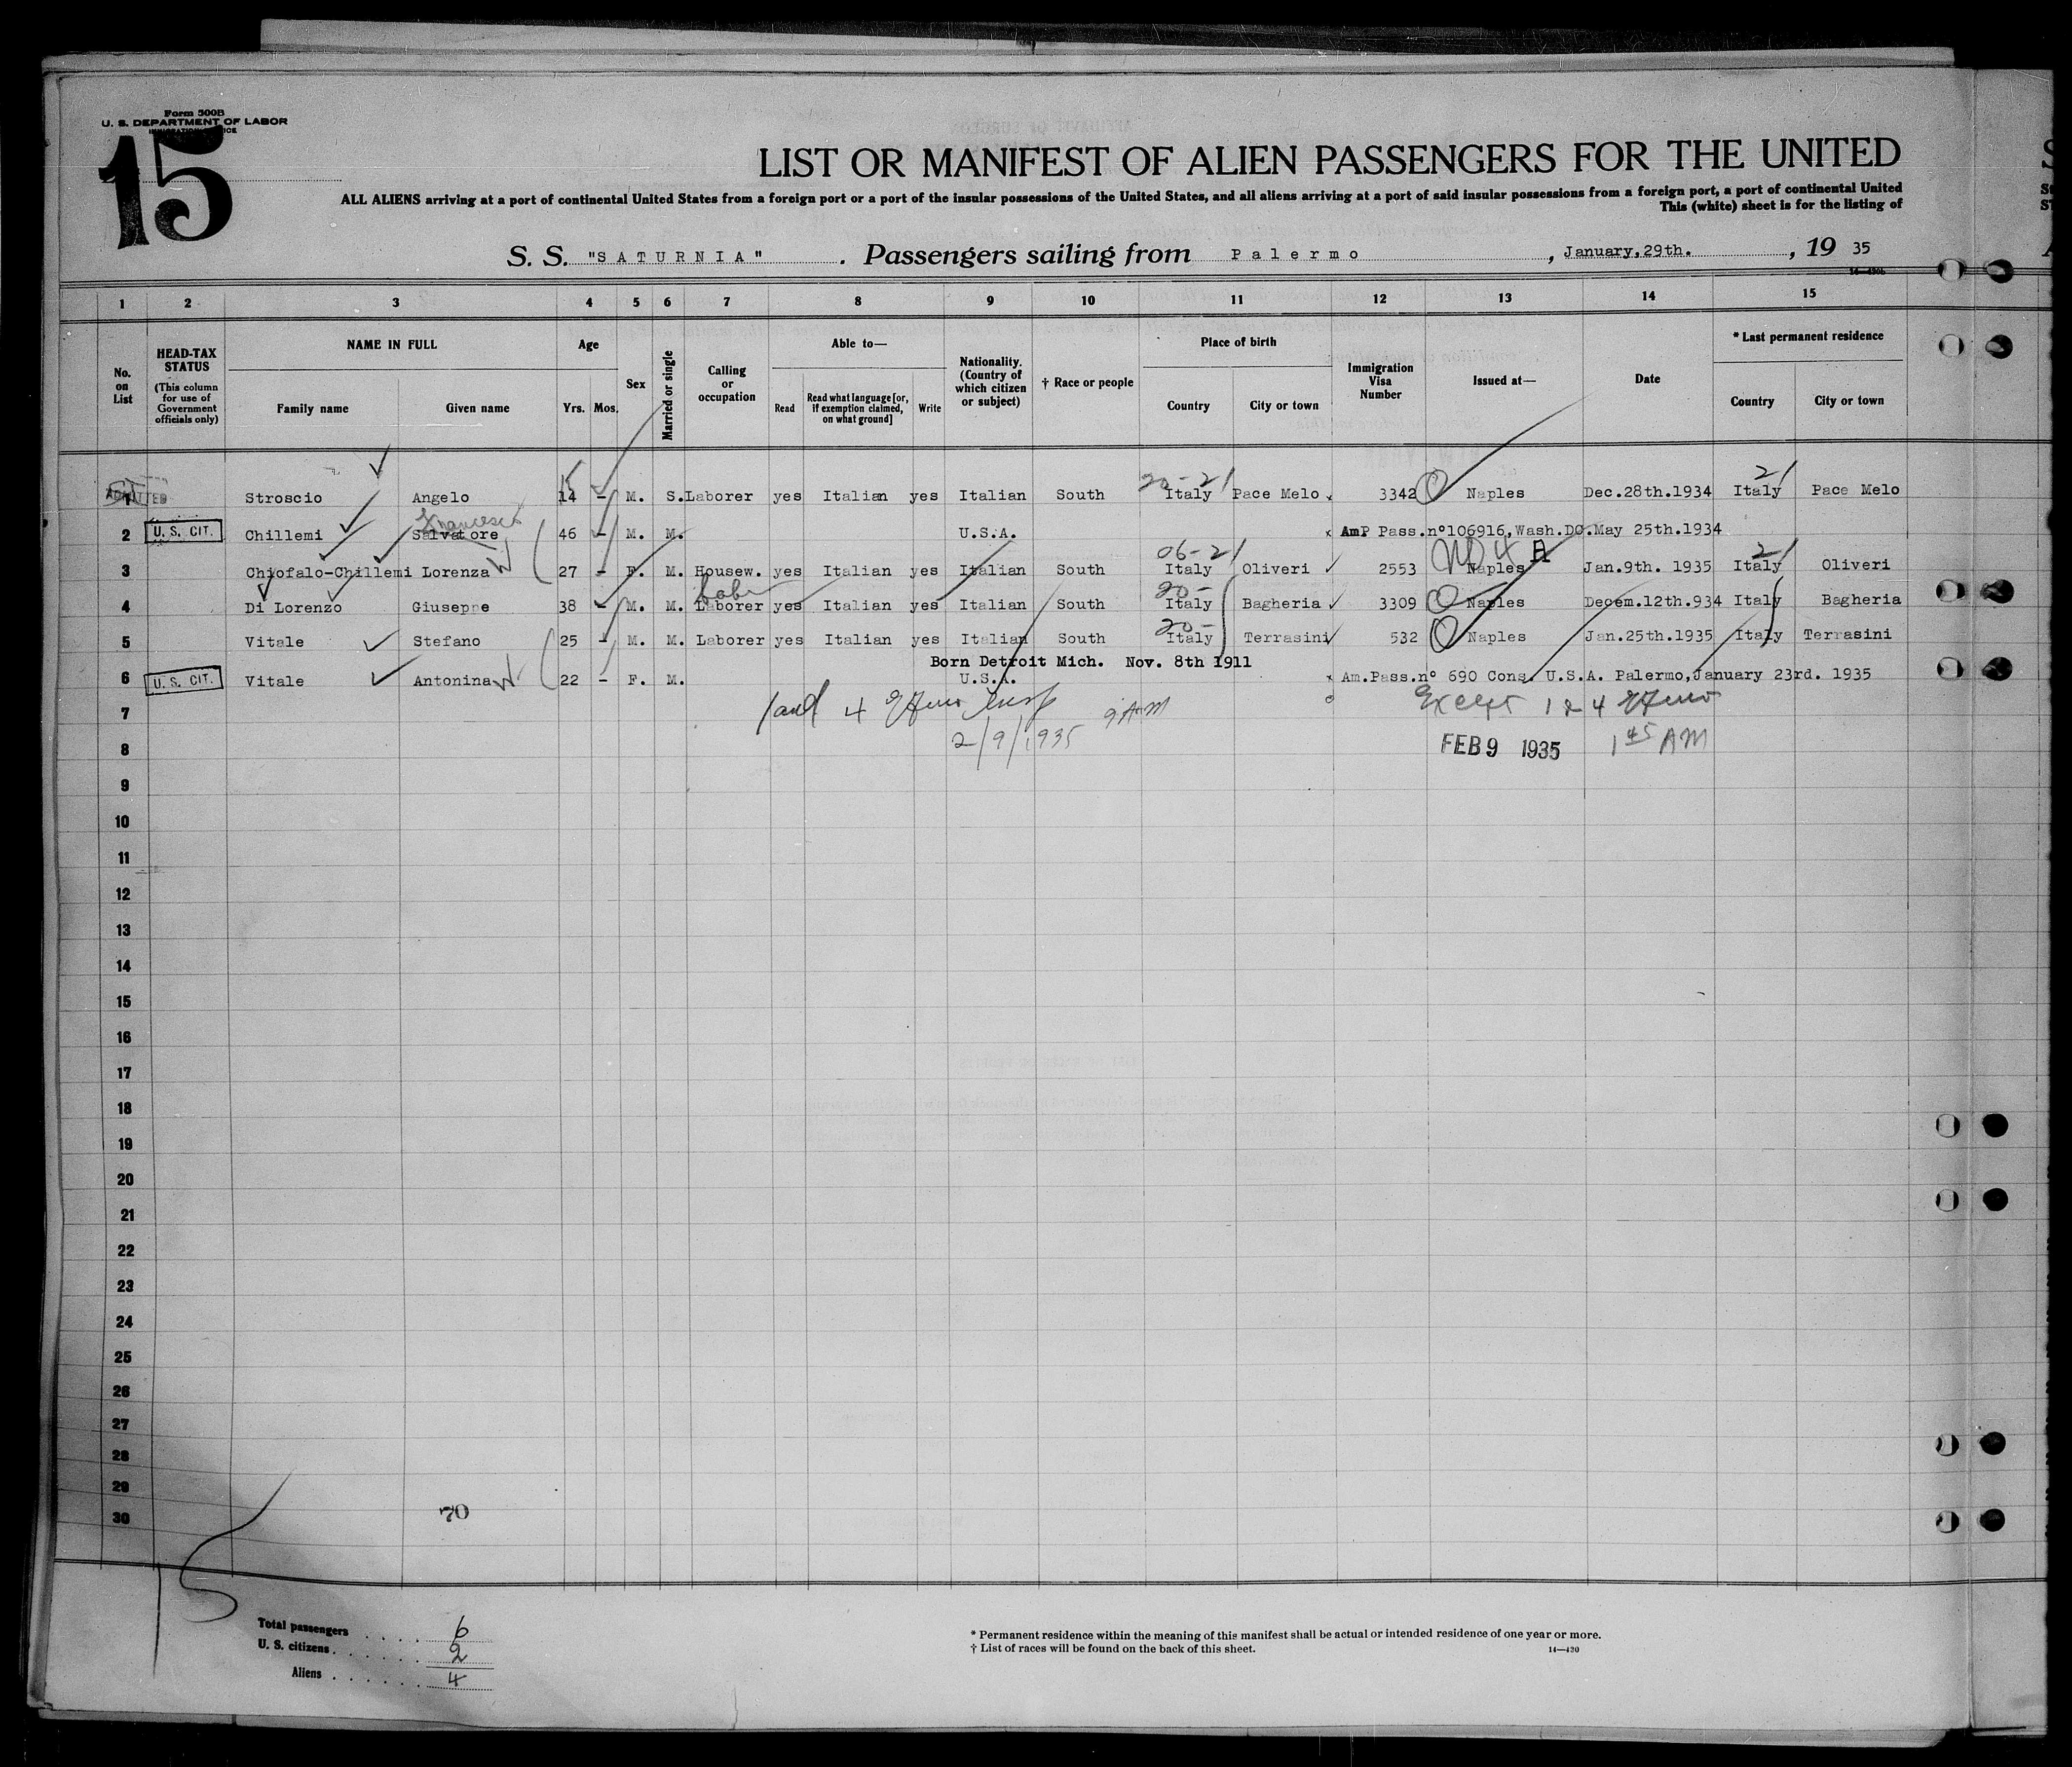 Form 500B
U. S. DEPARTMENT OF LABOR
15
LIST OR MANIFEST OF ALIEN PASSENGERS FOR THE UNITED
ALL ALIENS arriving at a port of continental United States from a foreign port or a port of the insular possessions of the United States, and all aliens arriving at a port of said insular possessions from a foreign port, a port of continental United
This (white) sheet is for the listing of
S. S. "SATURNIA" . Passengers sailing from Palermo , January,29th. , 19 35
1 2 3 4 5 6 7 8 9 10 11 12 13 14 15
No. on List
HEAD-TAX STATUS
(This column for use of Government officials only)
NAME IN FULL
Family name Given name
Age
Yrs. Mos.
Sex
Married or single
Calling or occupation
Able to—
Read Read what language [or, if exemption claimed, on what ground] Write
Nationality. (Country of which citizen or subject)
† Race or people
Place of birth
Country City or town
Immigration Visa Number
Issued at—
Date
* Last permanent residence
Country City or town
15 20-21 21
1 ADMITTED Stroscio Angelo 14 - M. S. Laborer yes Italian yes Italian South Italy Pace Melo 3342 Naples Dec.28th.1934 Italy Pace Melo
Francesco
2 U. S. CIT. Chillemi Salvatore 46 - M. M. U.S.A. AmP Pass.nº106916,Wash.DC.May 25th.1934
06-21 21
3 Chiofalo-Chillemi Lorenza 27 - F. M. Housew. yes Italian yes Italian South Italy Oliveri 2553 Naples Jan.9th. 1935 Italy Oliveri
20-
4 Di Lorenzo Giuseppe 38 - M. M. Laborer yes Italian yes Italian South Italy Bagheria 3309 Naples Decem.12th.934 Italy Bagheria
20-
5 Vitale Stefano 25 - M. M. Laborer yes Italian yes Italian South Italy Terrasini 532 Naples Jan.25th.1935 Italy Terrasini
Born Detroit Mich. Nov. 8th 1911
6 U. S. CIT. Vitale Antonina 22 - F. M. U.S.A. Am.Pass.nº 690 Cons. U.S.A. Palermo,January 23rd. 1935
7 1 and 4 9 AM Except 1 & 4
8 2/9/1935 FEB 9 1935 1 45 AM
9
10
11
12
13
14
15
16
17
18
19
20
21
22
23
24
25
26
27
28
29
30 70
15
Total passengers 6
U. S. citizens 2
Aliens 4
* Permanent residence within the meaning of this manifest shall be actual or intended residence of one year or more.
† List of races will be found on the back of this sheet. 14—430